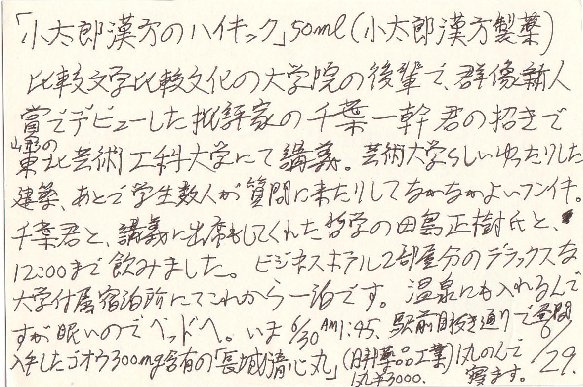 「小太郎漢方のハイキック」50ml(小太郎漢方製薬)
比較文学比較文化の大学院の後輩で、群像新人
賞でデビューした批評家の千葉一幹君の招きで
山形の
東北芸術工科大学にて講義。芸術大学らしいゆったりした
建築、あとで学生数人が質問に来たりしてなかなかよいフンイキ。
千葉君と、講義に出席もしてくれた哲学の田島正樹氏と、
12:00まで飲みました。ビジネスホテル2部屋分のデラックスな
大学付属宿泊所にてこれから一泊です。温泉にも入れるんで
すが眠いのでベッドへ。いま6/30 AM1:45、駅前目抜き通りで昼間
入手したゴオウ300mg含有の「長城清心丸」(薬品工業)1丸のんで
1丸¥3000. 寝ます。 6/29.